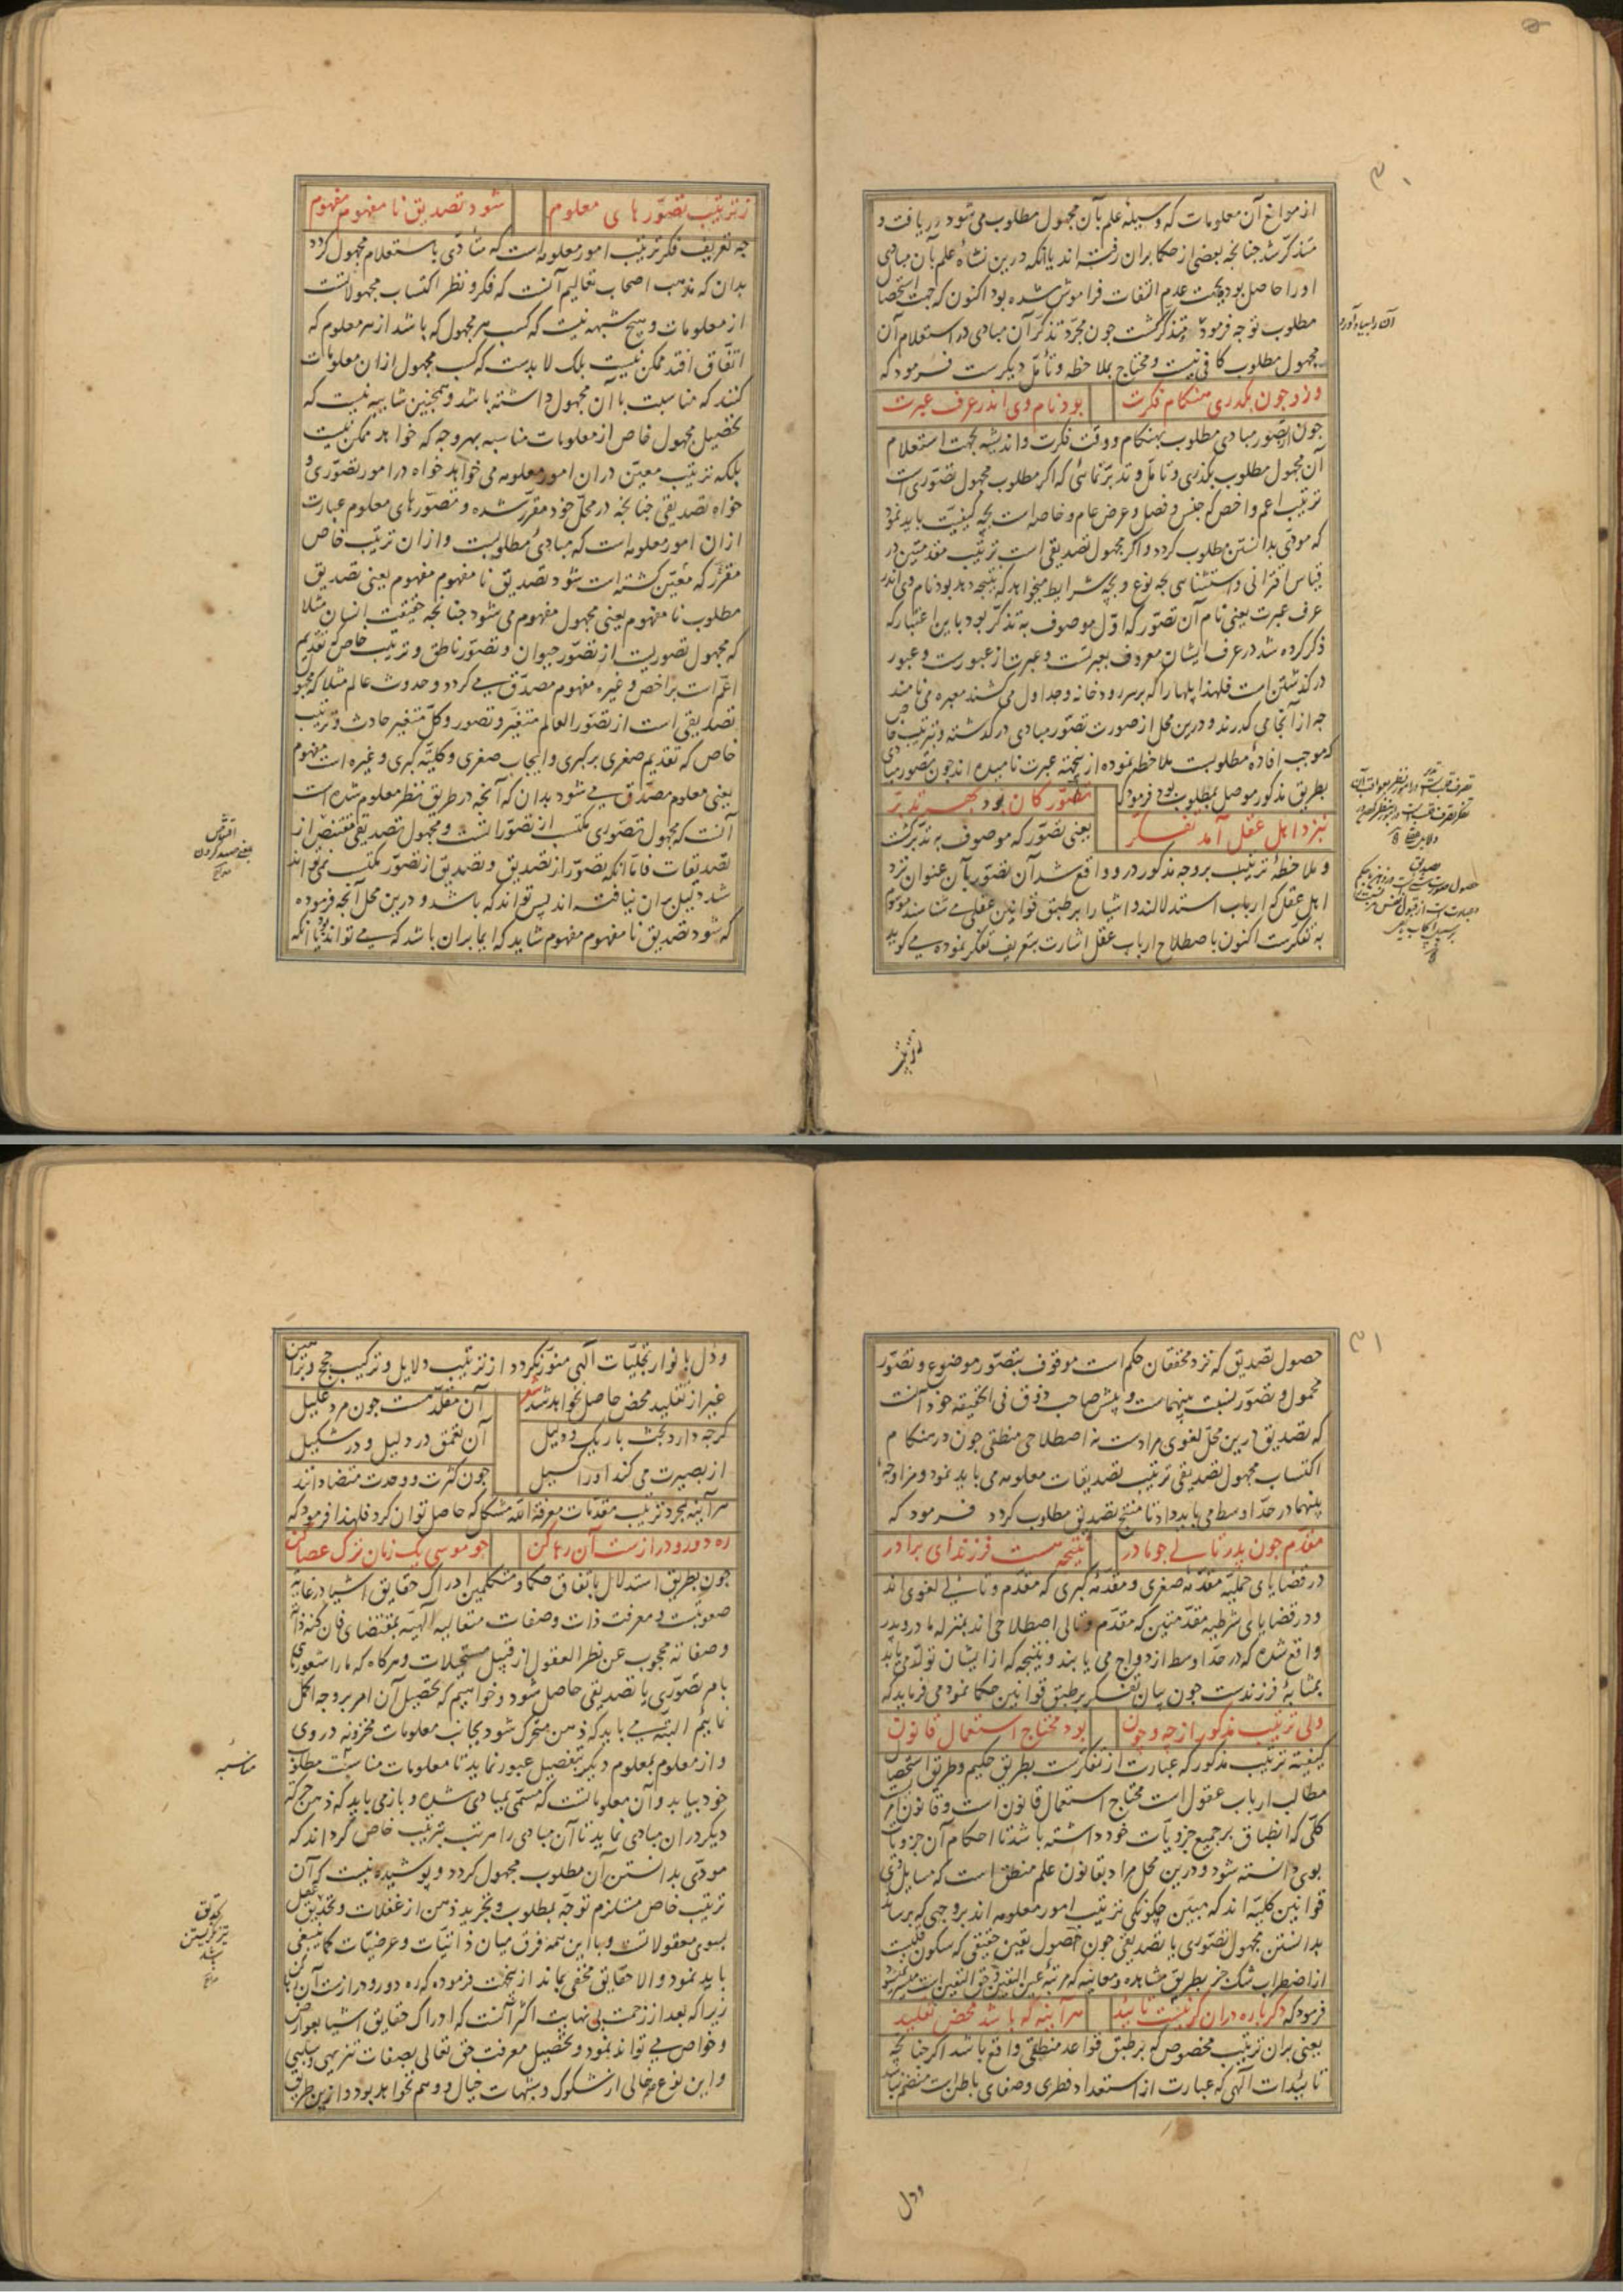 ۳۰
از موانع آن معلومات که وسیله علم بآن مجهول مطلوب می شود دریافت و
متذکر شد چنانچه بعضی از حکما بران رفته اند یا آنکه درین نشأه علم بآن مبادی
او را حاصل بوده بجهت عدم التفات فراموش شده بود اکنون که جهت استحصال
مطلوب توجه فرمود متذکر گشت چون مجرد تذکر آن مبادی در استعلام آن
مجهول مطلوب کافی نیست و محتاج بملاحظه و تأمل دیگرست فرمود که
وزو چون بگذری هنگام فکرت بود نام وی اندر عرف عبرت
چون از تصور مبادی مطلوب بهنگام و وقت فکرت و اندیشه بجهت استعلام
آن مجهول مطلوب بگذری و تأمل و تدبر نمائی که اگر مطلوب مجهول تصوری است
ترتیب اعم و اخص که جنس و فصل و عرض عام و خاصه است بچه کیفیت باید نمود
که مودی بدانستن مطلوب گردد و اگر مجهول تصدیقی است ترتیب مقدمتین در
قیاس اقترانی و استثنایی بچه نوع و بچه شرایط میخواهد که نتیجه دهد بود نام وی اندر
عرف عبرت یعنی نام آن تصور که اول موصوف به تذکر بود باین اعتبار که
ذکر کرده شد در عرف ایشان معروف بعبرتست و عبرت از عبورست و عبور
در گذشتن است فلهذا پلها را که بر سر رودخانه و جداول می کشند معبره می نامند
چه از آنجا می گذرند و درین محل از صورت تصور مبادی در گذشته و بترتیب خاص
که موجب افاده مطلوبست ملاحظه نموده ازینجهة عبرت نامیده اند چون تصور مبادی
بطریق مذکور موصل بمطلوب بود فرمود که تصور کان بود بهر تدبر
نزد اهل عقل آمد تفکر یعنی تصور که موصوف به تدبر گشت
و ملاحظه ترتیب بروجه مذکور درو واقع شد آن تصور بآن عنوان نزد
اهل عقل که ارباب استدلالند و اشیا را بر طبق قوانین عقلی می شناسند موسوم
به تفکرست اکنون باصطلاح ارباب عقل اشارت بتعریف تفکر نموده می گوید
ز ترتیب تصورهای معلوم شود تصدیق نامفهوم مفهوم
چه تعریف فکر ترتیب امور معلومه است که متأدی باستعلام مجهول گردد
بدان که مذهب اصحاب تعالیم آنست که فکر و نظر اکتساب مجهولاتست
از معلومات و هیچ شبهه نیست که کسب هر مجهول که باشد از هر معلوم که
اتفاق افتد ممکن نیست بلکه لابدست که کسب مجهول ازان معلومات
کنند که مناسبت با آن مجهول داشته باشد و همچنین شایبه نیست که
تحصیل مجهول خاص از معلومات مناسبه بهر وجه که خواهد ممکن نیست
بلکه ترتیب معین دران امور معلومه می خواهد خواه در امور تصوری و
خواه تصدیقی چنانچه در محل خود مقرر شده و تصورهای معلوم عبارت
ازان امور معلومه است که مبادی مطلوبست و ازان ترتیب خاص
مقرر که معین گشته است شود تصدیق نامفهوم مفهوم یعنی تصدیق
مطلوب نامفهوم یعنی مجهول مفهوم می شود چنانچه حقیقت انسان مثلا
که مجهول تصوریست از تصور حیوان و تصور ناطق و ترتیب خاص که تقدیم
اعم است بر اخص و غیره مفهوم مصدق می گردد و حدوث عالم مثلا که مجهول
تصدیقی است از تصور العالم متغیر و تصور و کل متغیر حادث و ترتیب
خاص که تقدیم صغری بر کبری و ایجاب صغری و کلیه کبری و غیره است مفهوم
یعنی معلوم مصدق می شود بدان که آنچه در طریق نظر معلوم شده است
آنست که مجهول تصوری مکتسب از تصوراتست و مجهول تصدیقی مقتنص از
تصدیقات فاما آنکه تصور از تصدیق و تصدیق از تصور مکتسب نمی تواند
شد دلیل بران نیافته اند پس تواند که باشد و درین محل آنچه فرموده
که شود تصدیق نامفهوم مفهوم شاید که ایما بران باشد که می تواند بود یا آنکه
ترتیب
۳۱
حصول تصدیق که نزد محققان حکم است موقوف بتصور موضوع و تصور
محمول و تصور نسبت بینهماست و پیش صاحب ذوق فی الحقیقه خود آنست
که تصدیق درین محل لغوی مرادست نه اصطلاحی منطقی چون در هنگام
اکتساب مجهول تصدیقی ترتیب تصدیقات معلومه می باید نمود و مزاوجه
بینهما در حد اوسط می باید داد تا منتج تصدیق مطلوب گردد فرمود که
مقدم چون پدر تالی چو مادر نتیجه هست فرزند ای برادر
در قضایای حملیه مقدمه صغری و مقدمه کبری که مقدم و تالی لغوی اند
و در قضایای شرطیه مقدمتین که مقدم و تالی اصطلاحی اند بمنزله مادر و پدر
واقع شده که در حد اوسط ازدواج می یابند و نتیجه که از ایشان تولد می یابد
بمثابه فرزندست چون بیان تفکر بر طبق قوانین حکما نمود می فرماید که
ولی ترتیب مذکور از چه و چون بود محتاج استعمال قانون
کیفیته ترتیب مذکور که عبارت از تفکرست بطریق حکیم و طریق استحصال
مطالب ارباب عقول است محتاج استعمال قانون است و قانون امر
کلی که انطباق بر جمیع جزویات خود داشته باشد تا احکام آن جزویات
بوی دانسته شود و درین محل مراد بقانون علم منطق است که مسایل وی
قوانین کلیه اند که مبین چگونگی ترتیب امور معلومه اند بروجهی که برساند
بدانستن مجهول تصوری یا تصدیقی چون حصول یقین حقیقی که سکون قلبست
از اضطراب شک جز بطریق مشاهده و معاینه که مرتبه عین الیقین و حق الیقین است میسر نمیشود
فرمود که دگرباره دران گر نیست تایید هر آیینه که باشد محض تقلید
یعنی بران ترتیب مخصوص که بر طبق قواعد منطقی واقع باشد اگر چنانچه
تائیدات الهی که عبارت از استعداد فطری و صفای باطن است منضم نباشد
ودل بانوار تجلیات الهی منور نگردد از ترتیب دلایل و ترکیب حجج و براهین
غیر از تقلید محض حاصل نخواهد شد شعر آن مقلد هست چون مرد علیل
گرچه دارد بحث باریک و دلیل آن تعمق در دلیل و در شکیل
از بصیرت می کند او را گسیل چون کثرت و وحدت متضادانند
هر آینه بمجرد ترتیب مقدمات معرفة الله مشکل که حاصل توان کرد فلهذا فرمود که
ره دور و درازست آن رها کن چو موسی یک زمان ترک عصا کن
چون بطریق استدلال باتفاق حکما و متکلمین ادراک حقایق اشیا در غایة
صعوبت و معرفت ذات و صفات متعالیه الهیه بمقتضای فان کنه ذاته
وصفاته محجوب عن نظر العقول از قبیل مستحیلات و هرگاه که ما را شعوری
بامر تصوری یا تصدیقی حاصل شود و خواهیم که تحصیل آن امر بروجه اکمل
نمایم البته می باید که ذهن متحرک شود بجانب معلومات مخزونه در وی
و از معلوم بمعلوم دیگر بتفصیل عبور نماید تا معلومات مناسبت مطلوب
خود بیابد و آن معلوماتست که مسمی بمبادی شده و باز می باید که ذهن حرکت
دیگر دران مبادی نماید تا آن مبادی را مرتب بترتیب خاص گرداند که
مودی بدانستن آن مطلوب مجهول گردد و پوشیده نیست که آن
ترتیب خاص مستلزم توجه بمطلوب و تجرید ذهن از غفلات و تحدیق عقل
بسوی معقولاتست و با این همه فرق میان ذاتیات و عرضیات کما ینبغی
باید نمود و الا حقایق مخفی بماند ازینجهت فرموده که ره دور و درازست آن رها کن
زیرا که بعد از زحمت بی نهایت اکثر آنست که ادراک حقایق اشیا بعوارض
و خواص می تواند نمود و تحصیل معرفت حق تعالی بصفات تنزیهی و سلبی
و این نوع هم خالی از شکوک و شبهات خیال و وهم نخواهد بود و ازین طریق
ودل